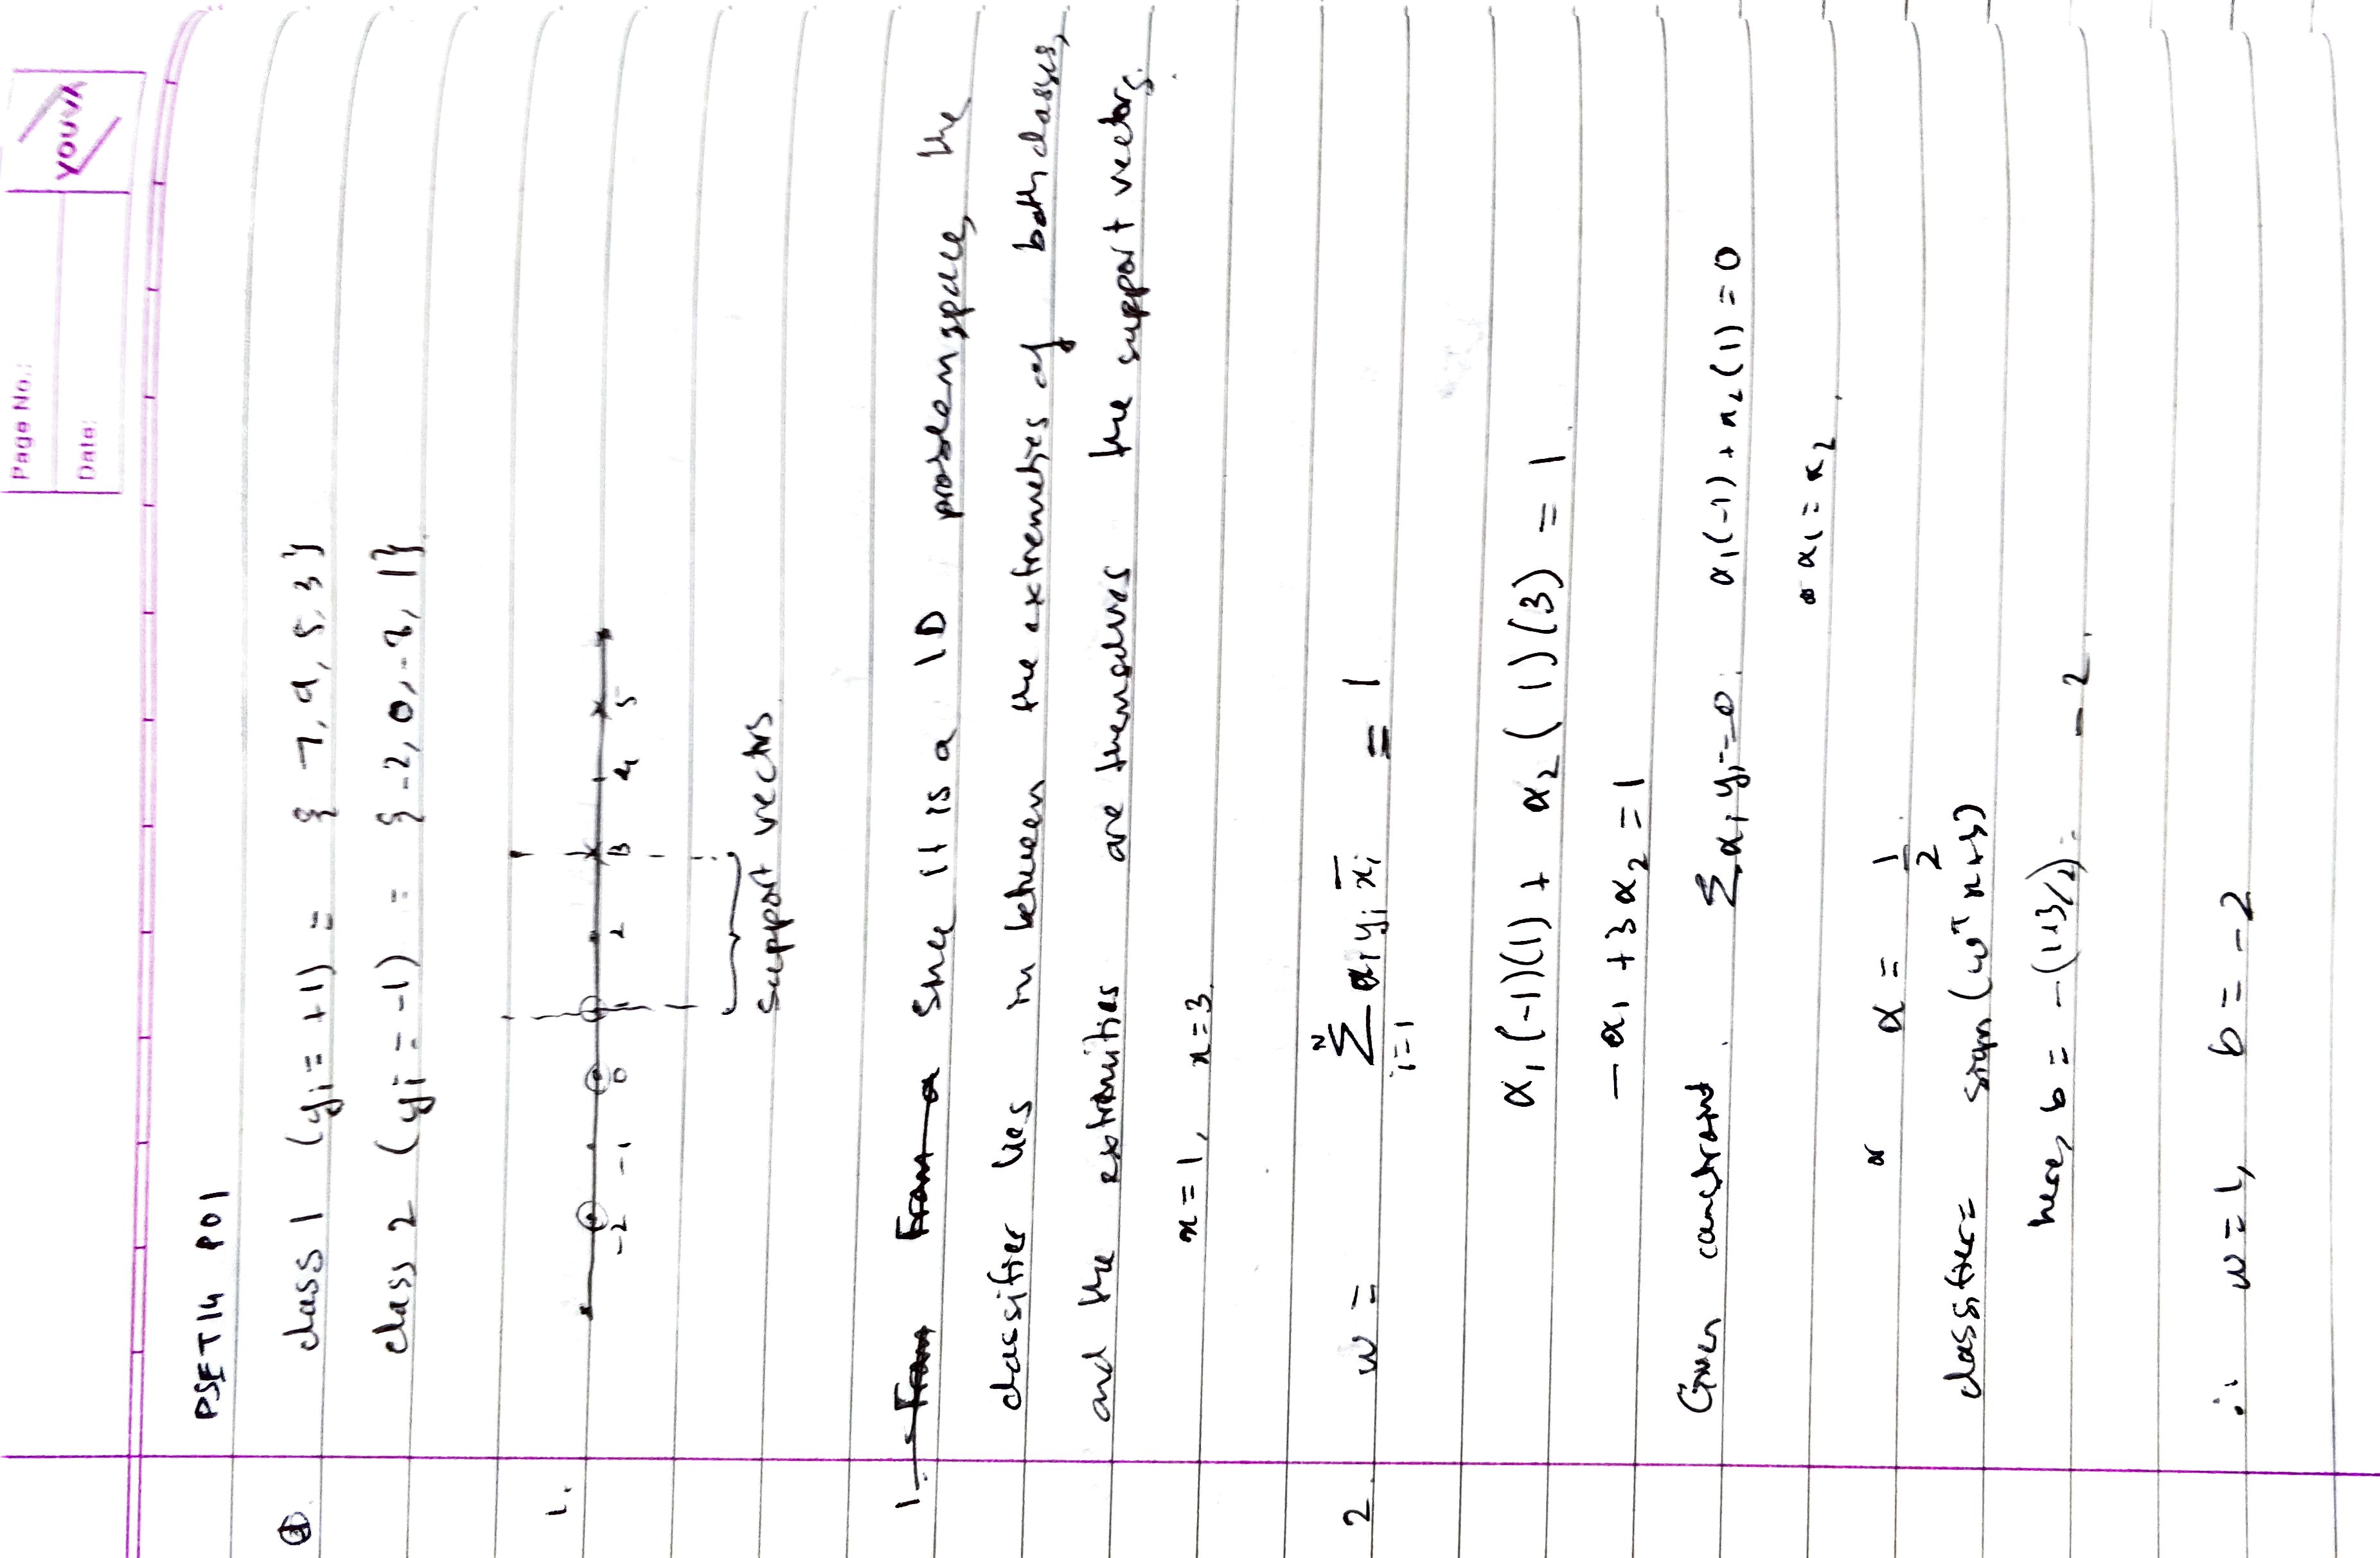 Page No.:
Date:
YOUVA
PSET14 P01
class 1 (yi = +1) = { 7, 9, 5, 3}
class 2 (yi = -1) = {-2, 0, -2, 1}
1.
-2 -1 0 1 2 3 4 5
support vectrs
1. From From a Since it is a 1D problem space, the
classifier lies in between the extremeties of both classes,
and the extremities are themselves the support vectors.
x=1, x=3.
2. w = N∑i=1 αi yi x̄i = 1
α1(-1)(1) + α2(1)(3) = 1
-α1 + 3α2 = 1
Given constraint ∑αi yi=0. α1(-1) + α2(1) = 0
∞ α1 = α2
α = 1/2
classifier= sign(wT x+b)
here, b = -(1+3/2) = -2.
∴ w=1, b=-2